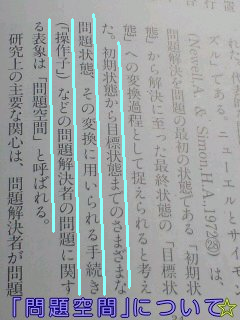 ズルである。ニューエルとサイモン
(Newell,A., Simon,H.A.,1972㉕) は、
問題解決を問題の最初の状態である「初期状
態」から解決に至った最終状態の「目標状
態」への変換過程として捉えられると考え
た。初期状態から目標状態までのさまざまな
問題状態、その変換に用いられる手続き
(「操作子」)などの問題解決者の問題に関す
る表象は「問題空間」と呼ばれる。
研究上の主要な関心は、問題解決者が問題
「問題空間」について☆